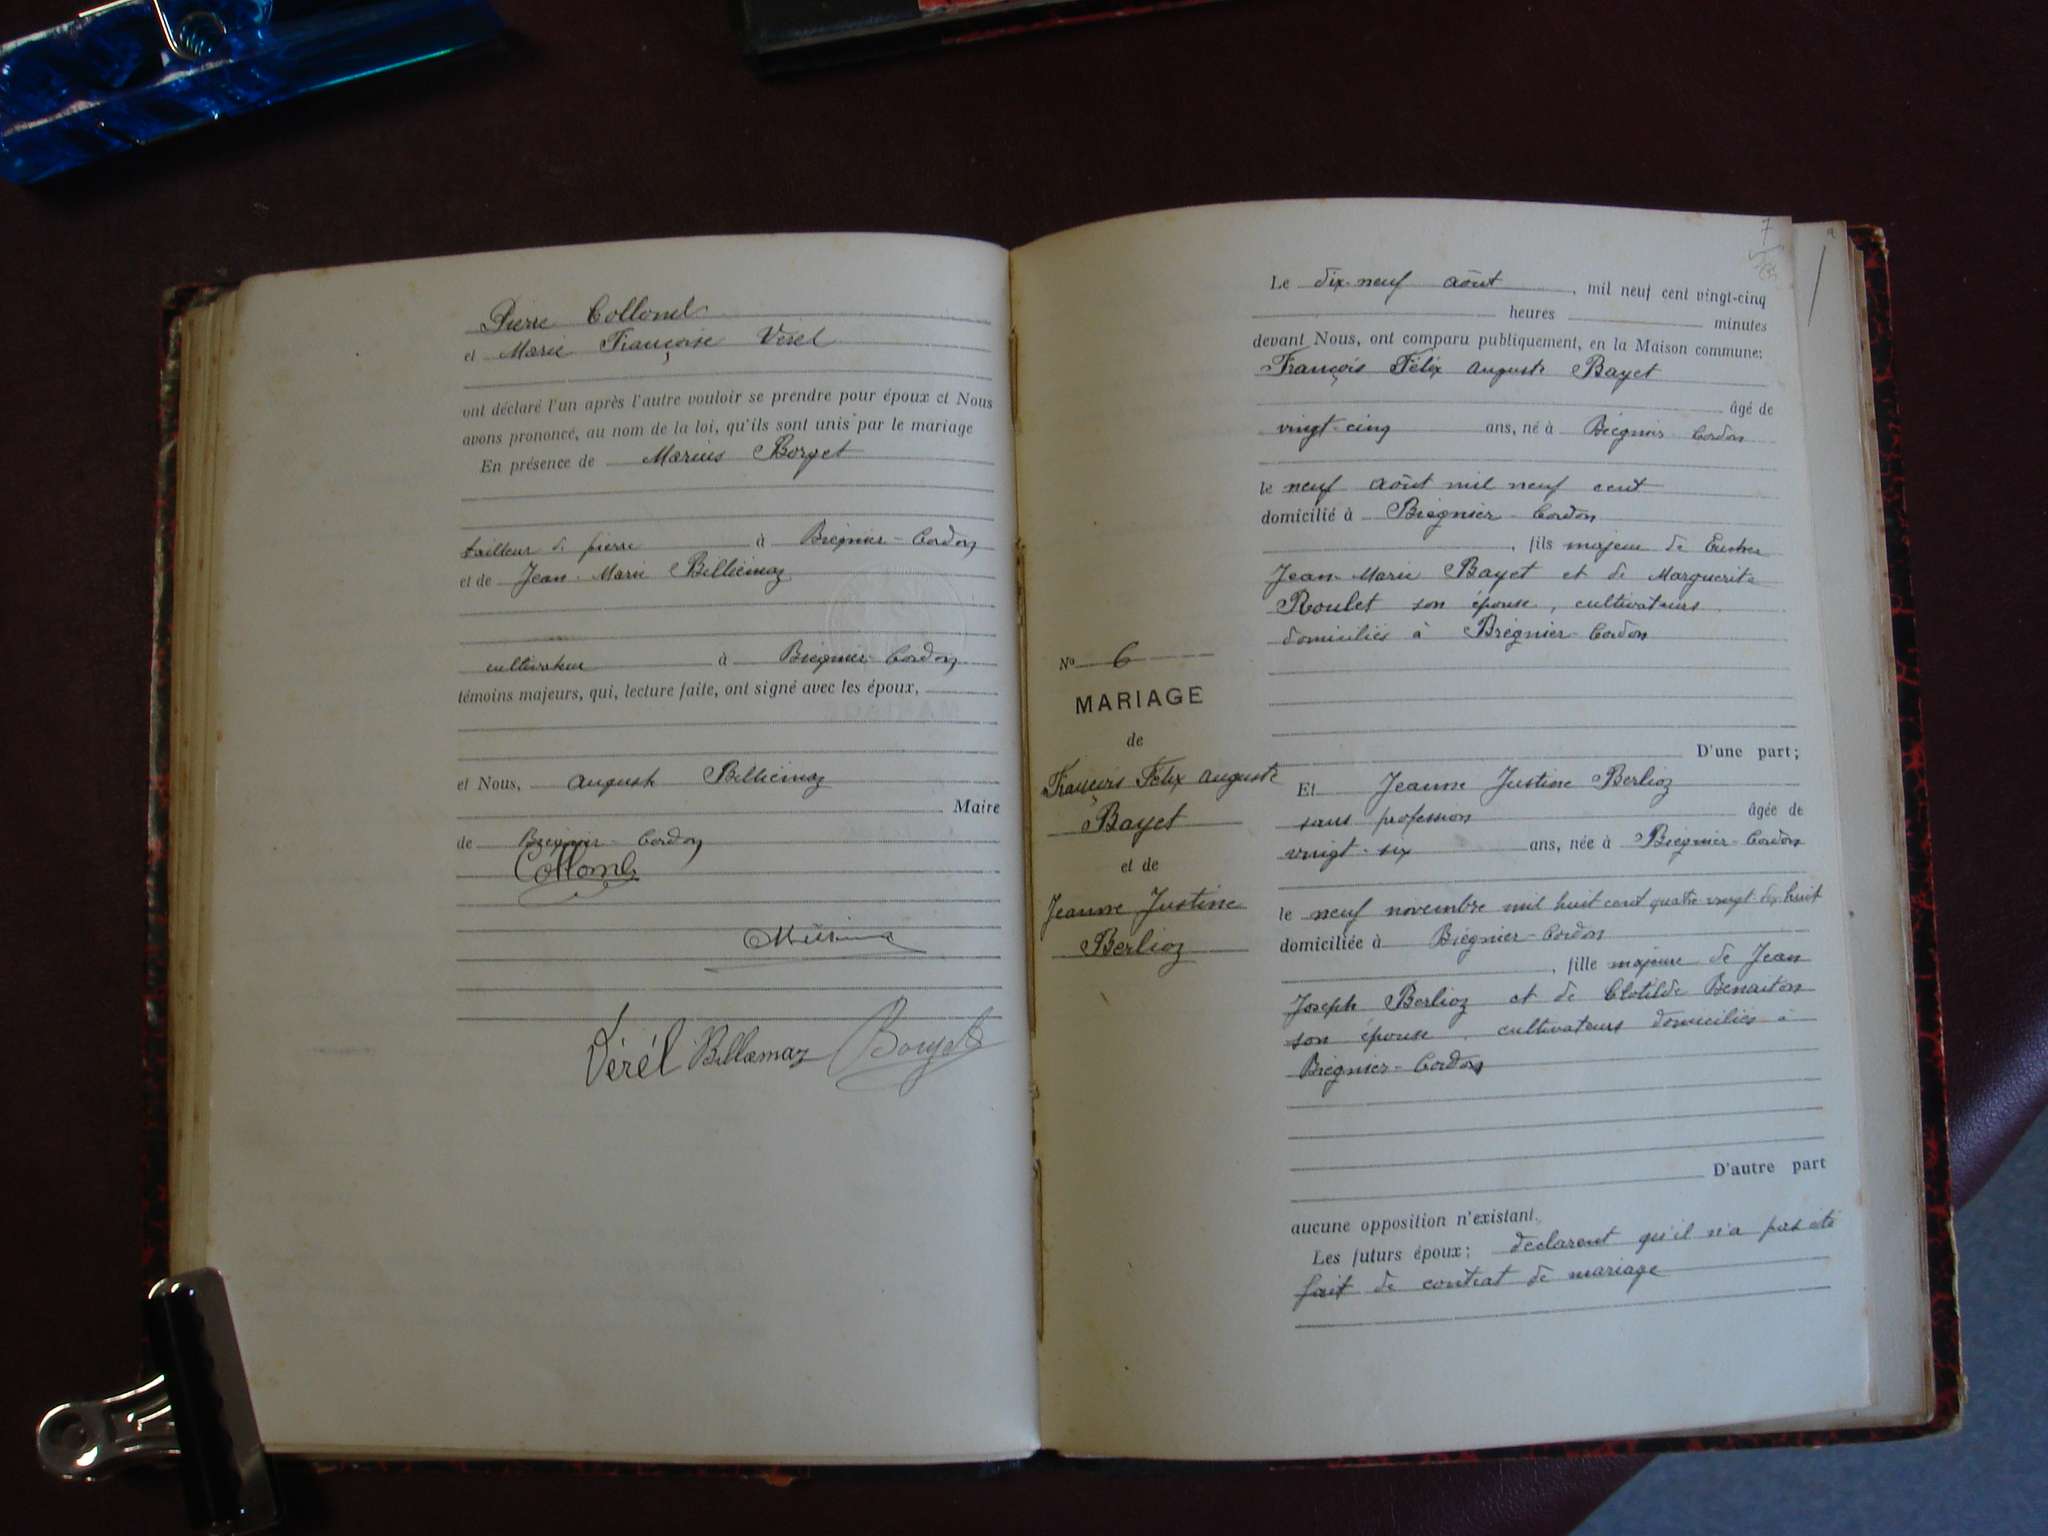 Pierre Collomb
et Marie Françoise Vérel
ont déclaré l'un après l'autre vouloir se prendre pour époux et Nous
avons prononcé, au nom de la loi, qu'ils sont unis par le mariage
En présence de Marius Borget
tailleur de pierre à Brégnier-Cordon
et de Jean-Marie Billiémaz
cultivateur à Brégnier-Cordon
témoins majeurs, qui, lecture faite, ont signé avec les époux,
et Nous, Auguste Billiémaz
Maire
de Brégnier-Cordon
Collomb
Vérél Billiemaz Borget
7
Le dix-neuf août, mil neuf cent vingt-cinq
heures minutes
devant Nous, ont comparu publiquement, en la Maison commune:
François Félix Auguste Bayet
âgé de
vingt-cinq ans, né à Brégnier Cordon
le neuf août mil neuf cent
domicilié à Brégnier-Cordon
, fils majeur de
Jean-Marie Bayet et de Marguerite
Roulet son épouse, cultivateurs
domiciliés à Brégnier-Cordon
No 6
MARIAGE
de
François Félix Auguste
Bayet
et de
Jeanne Justine
Berlioz
D'une part;
Et Jeanne Justine Berlioz
sans profession âgée de
vingt-six ans, née à Brégnier-Cordon
le neuf novembre mil huit cent quatre vingt dix huit
domiciliée à Brégnier-Cordon
, fille majeure de Jean
Joseph Berlioz et de Clotilde Benaiton
son épouse, cultivateurs domiciliés à
Brégnier-Cordon
D'autre part
aucune opposition n'existant.
Les futurs époux; déclarent qu'il n'a pas été
fait de contrat de mariage